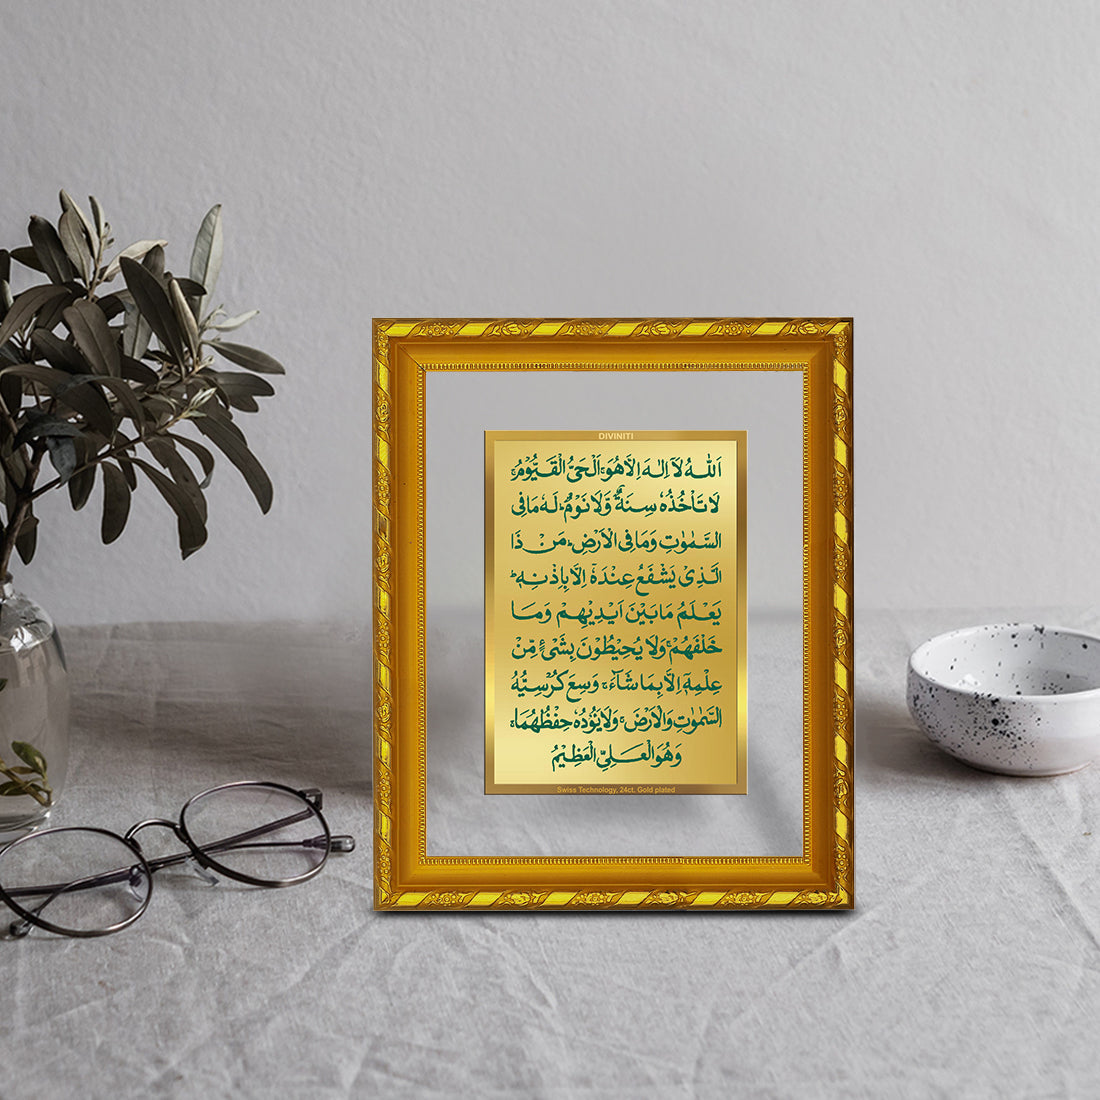 DIVINITI
اَللّٰهُ لَآ اِلٰهَ اِلَّا هُوَ ۚ اَلْحَيُّ الْقَيُّوْمُ ۚ
لَا تَاْخُذُهٗ سِنَةٌ وَّلَا نَوْمٌ ؕ لَهٗ مَا فِى
السَّمٰوٰتِ وَمَا فِى الْاَرْضِ ؕ مَنْ ذَا
الَّذِىْ يَشْفَعُ عِنْدَهٗٓ اِلَّا بِاِذْنِهٖ ؕ
يَعْلَمُ مَا بَيْنَ اَيْدِيْهِمْ وَمَا
خَلْفَهُمْ ۚ وَلَا يُحِيْطُوْنَ بِشَىْءٍ مِّنْ
عِلْمِهٖٓ اِلَّا بِمَا شَآءَ ۚ وَسِعَ كُرْسِيُّهُ
السَّمٰوٰتِ وَالْاَرْضَ ۚ وَلَا يَئُوْدُهٗ حِفْظُهُمَا ۚ
وَهُوَ الْعَلِىُّ الْعَظِيْمُ
Swiss Technology, 24ct. Gold plated